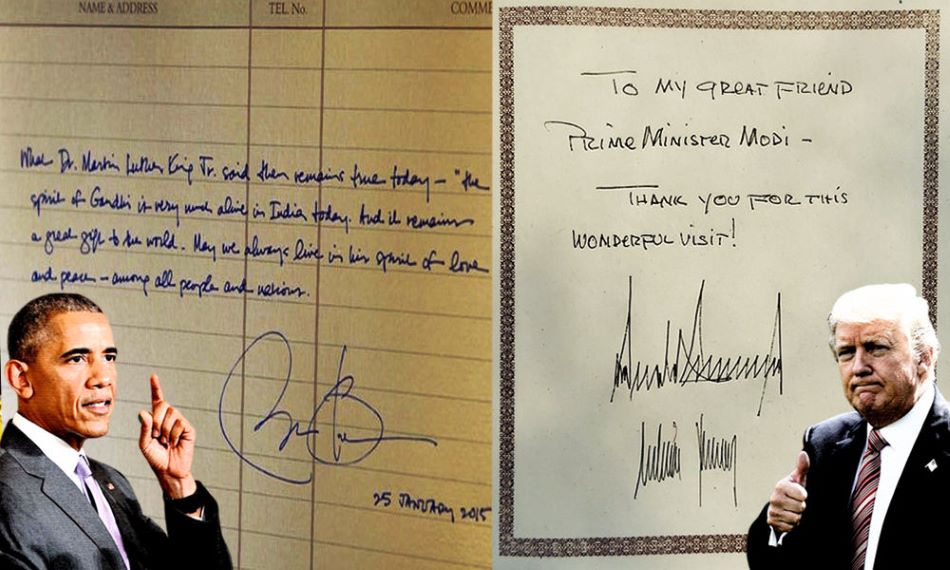 NAME & ADDRESS
TEL. No.
COMME
What Dr. Martin Luther King Jr. said then remains true today – "the
spirit of Gandhi is very much alive in India today. And it remains
a great gift to the world. May we always live in his spirit of love
and peace – among all people and nations.
25 JANUARY 2015
TO MY GREAT FRIEND
PRIME MINISTER MODI –
THANK YOU FOR THIS
WONDERFUL VISIT!